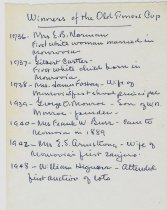 Winners of the Old Timers Cup
1936 - Mrs E B Norman
First white woman married in
Monrovia
1937 - Gilbert Carter -
First white child born in
Monrovia
1938 - Mrs. - Wife of
Monrovia's first school principal
1939 - George O. Monroe - Son of W.N.
Monroe - founder
1940 - Mrs Frank W. Burr - Came to
Monrovia in 1889
1942 - Mrs E. S. Armstrong - Wife of
Monrovia's first
1948 - William - Attended
first auction of lots